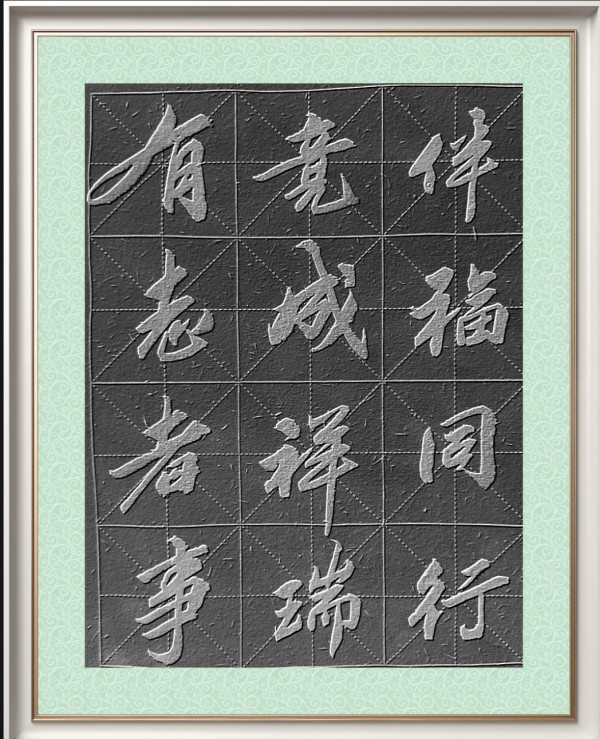 有志者事
竟成祥瑞
伴福同行